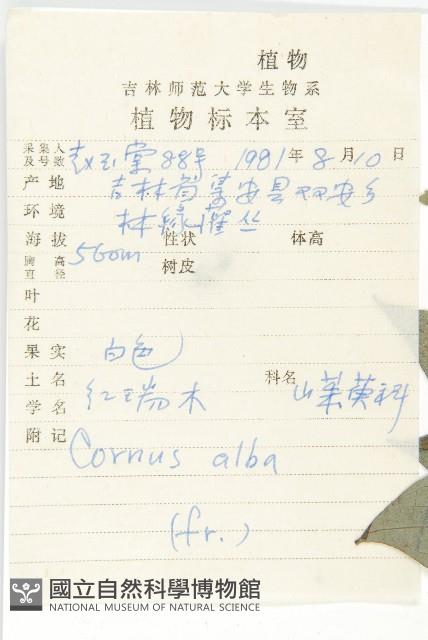 植物
吉林师范大学生物系
植物标本室
采集人及号数 赵玉堂 88号 1981年8月10日
产地 吉林省集安县双安乡
环境 林緣灌丛
海拔 560m 性状 体高
胸高直径 树皮
叶
花
果实 白色
土名 红瑞木 科名 山茱萸科
学名
附记 Cornus alba
(fr.)
國立自然科學博物館
NATIONAL MUSEUM OF NATURAL SCIENCE